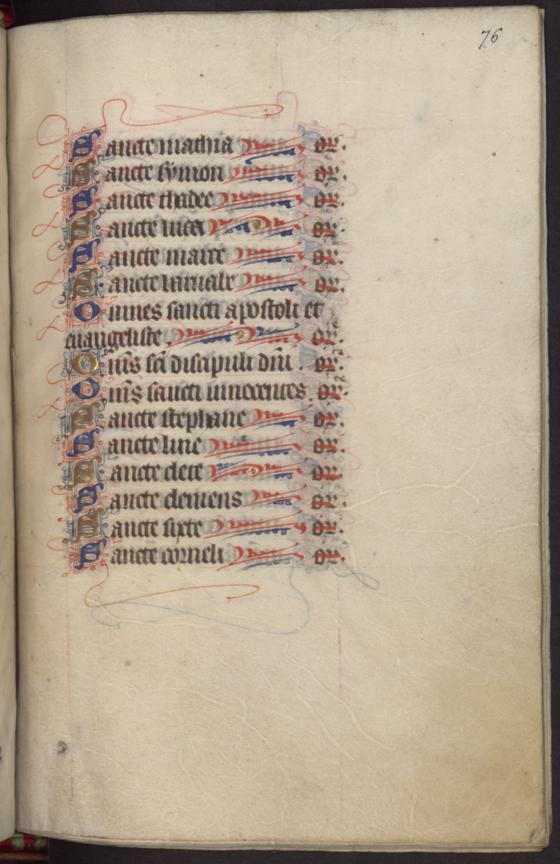 76
Sancte mathia or.
Sancte symon or.
Sancte thadee or.
Sancte luca or.
Sancte marce or.
Sancte marcialis or.
Omnes sancti apostoli et
euangeliste. or.
Om̄s sc̄i discipuli dn̄i. or.
Om̄s sancti innocentes. or.
Sancte stephane or.
Sancte line or.
Sancte clete or.
Sancte clemens or.
Sancte sixte or.
Sancte corneli or.